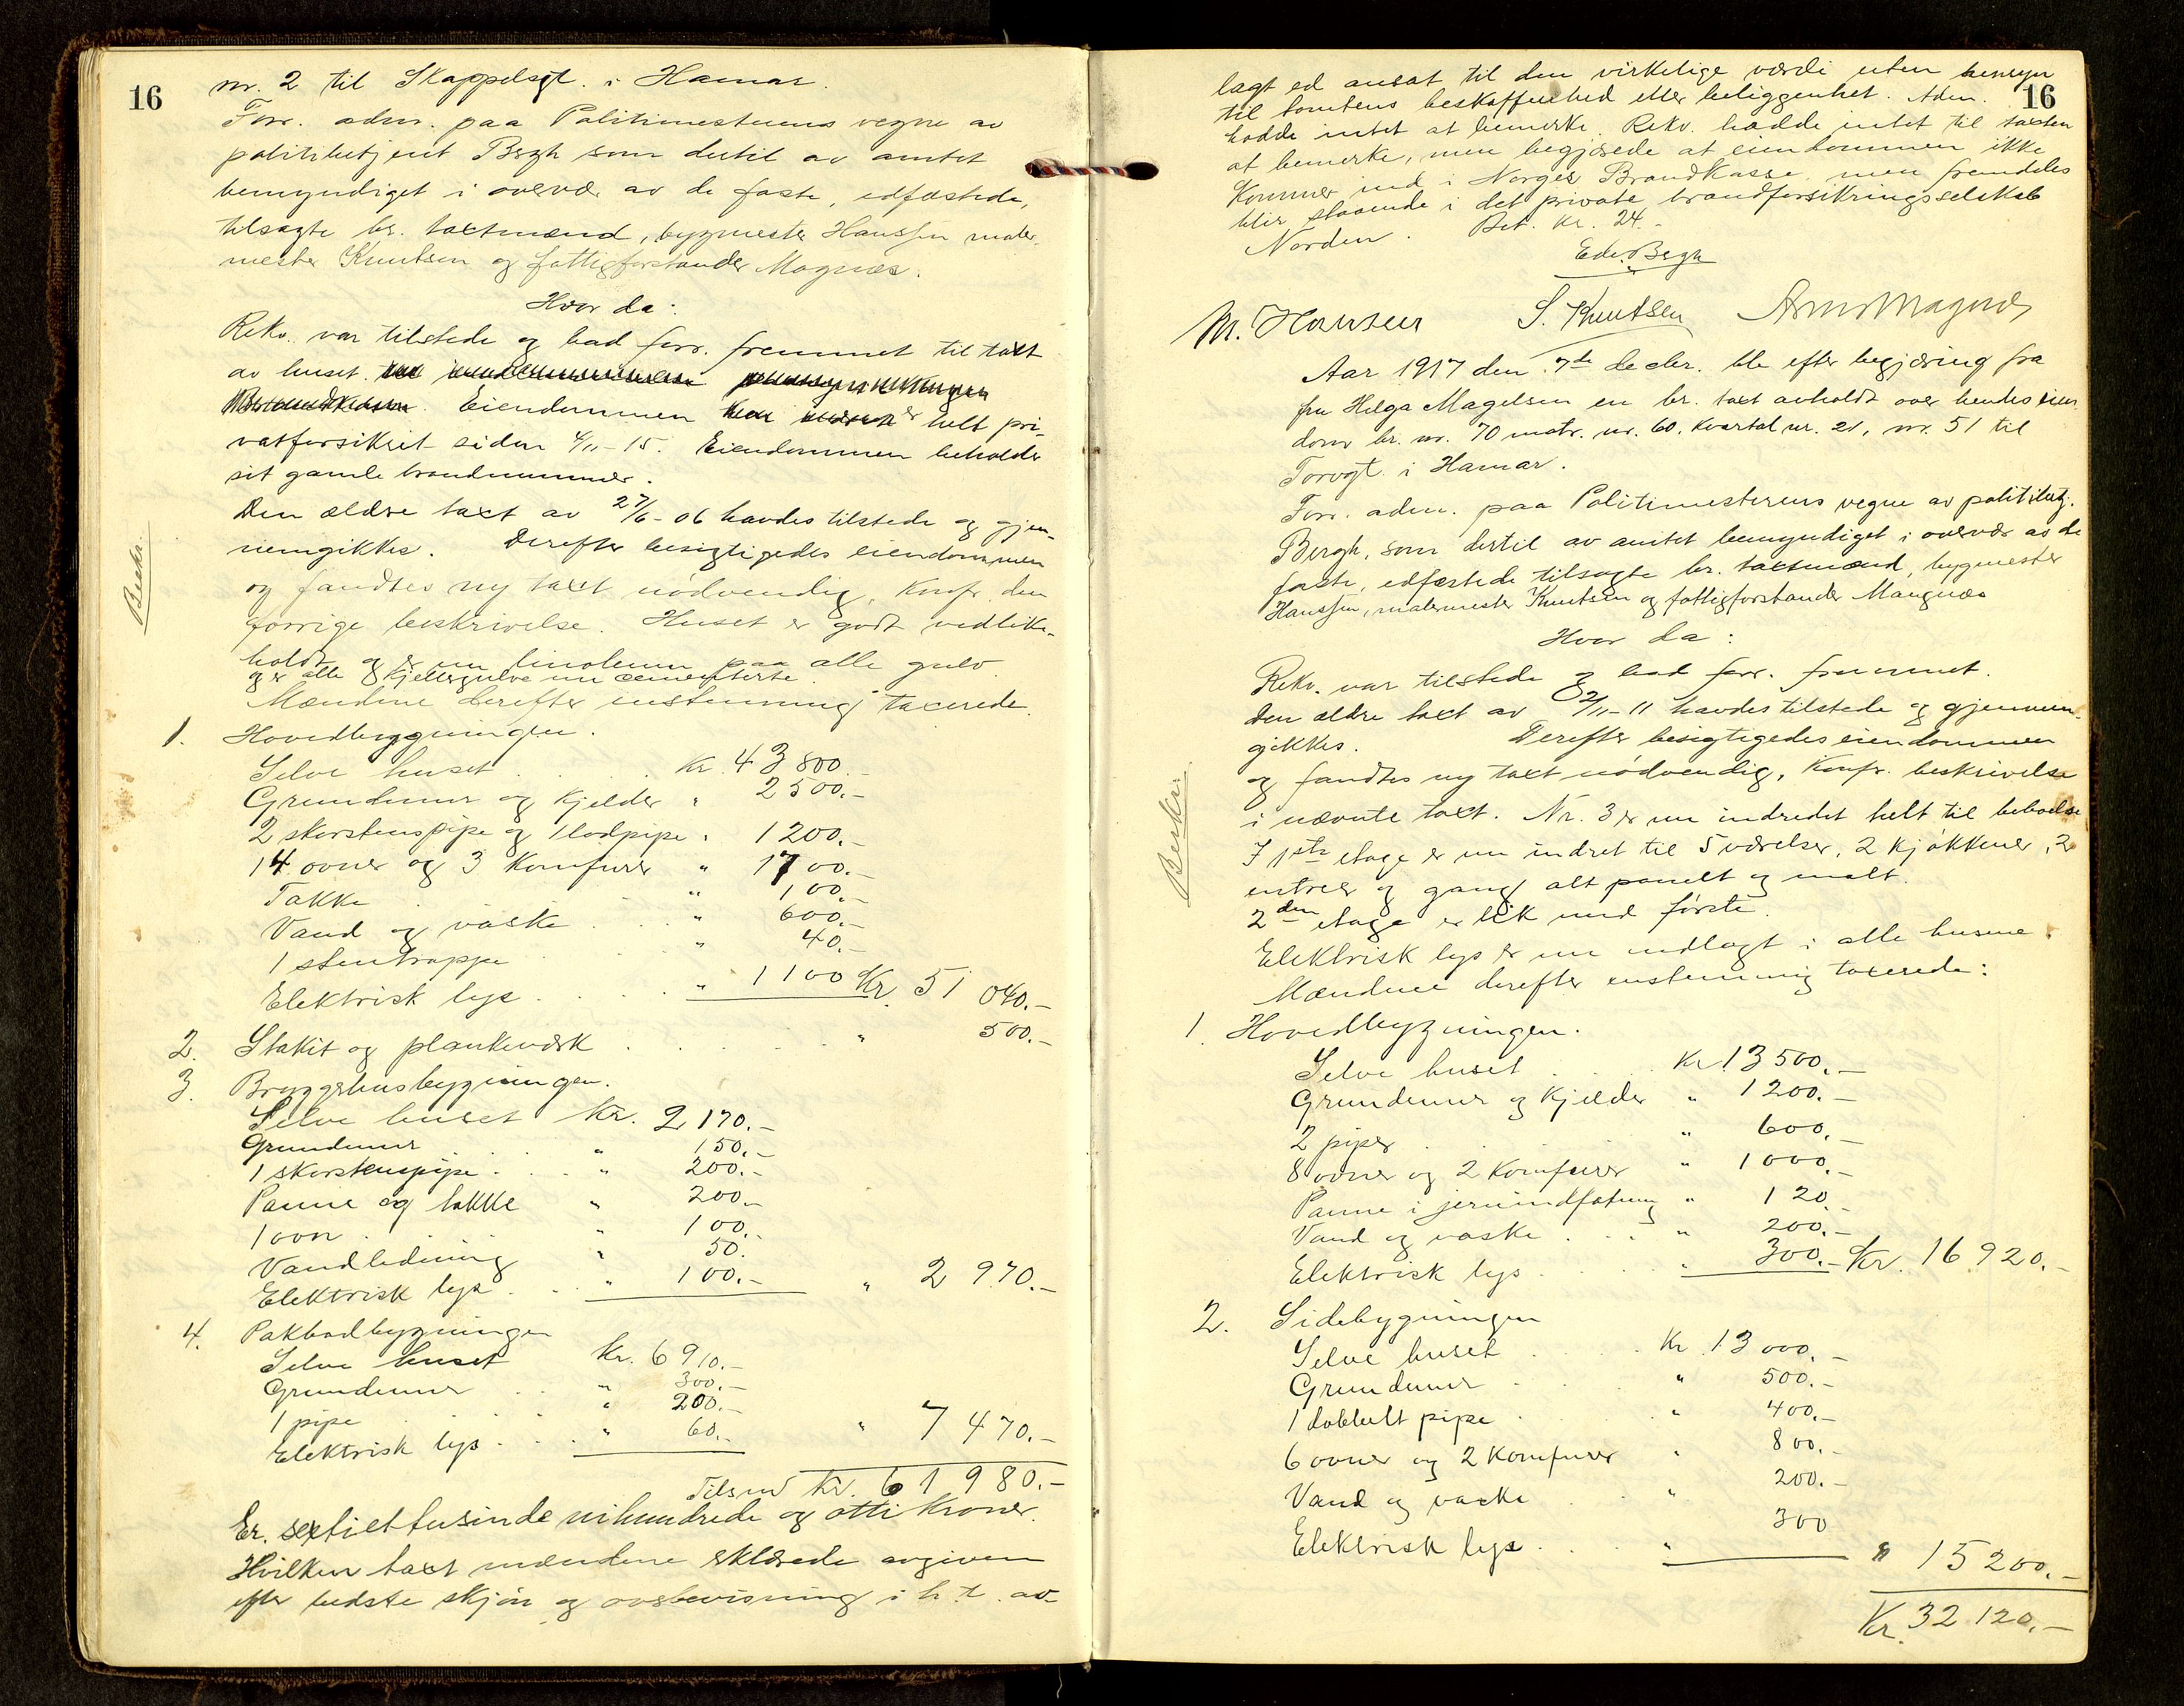 16
nr. 2 til Skappelsgt. i Hamar.
Forr. adm. paa Politimesterens vegne av
politibetjent Bergh som dertil av amtet
bemyndiget i overvær av de faste, edfæstede,
tilsagte br. taxtmænd, bygmester Hanssen maler-
mester Knutsen og fattigforstander Magnæs.
Hvor da:
Rekv. var tilstede og bad forr. fremmet til taxt
av huset.
Eiendommen er helt pri-
vatforsikret siden 4/11-15. Eiendommen beholder
sit gamle brandnummer.
Beskr.
Den ældre taxt av 27/6-06 havdes tilstede og gjen-
nemgikkes. Derefter besigtigedes eiendommen
og fandtes ny taxt nödvendig, Konfr. den
forrige beskrivelse. Huset er godt vedlike-
holdt og er nu linoleum paa alle gulv
og er alle kjellergulve nu cementerte.
Mændene derefter enstemmig taxerede.
1. Hovedbygningen.
Selve huset Kr. 43 800.-
Grundmur og Kjelder " 2500.-
2 skorstenspipe og 1 lodpipe " 1200.-
14 ovner og 3 Komfurer " 1700.-
Takke " 100.-
Vand og vaske " 600.-
1 stentrappe " 40.-
Elektrisk lys " 1100 Kr. 51 040.-
2. Stakit og plankeværk " 500.-
3. Bryggerhusbygningen.
Selve huset Kr. 2170.-
Grundmur " 150.-
1 skorstenspipe " 200.-
Panne og takke " 200.-
1 ovn " 100.-
Vandledning " 50.
Elektrisk lys " 100.- " 2 970.-
4. Pakbodbygningen
Selve huset Kr. 6910.-
Grundmur " 300.-
1 pipe " 200.-
Elektrisk lys " 60.- " 7 470.-
Tilsm Kr. 61 980.-
Er. sextiettusinde nihundrede og otti Kroner.
Hvilken taxt mændene erklærede avgiven
efter bedste skjön og overbevisning i h. t. av-
16
lagt ed ansat til den virkelige værdi uten hensyn
til tomtens beskaffenhed eller beliggenhet. Adm.
hadde intet at bemerke. Rekv. hadde intet til taxten
at bemerke, men begjærede at eiendommen ikke
Kommer ind i Norges Brandkasse men fremdeles
blir staaende i det private brandforsikringsselskab
Norden. Bet. Kr. 24.-
Edv. Bergh
M. Hansen S. Knutsen Arne Magnæs
Aar 1917 den 7de decbr. ble efter begjæring fra
fru Helga Magelsen en br. taxt avholdt over hendes eien-
dom br. nr. 70 matr. nr. 60. Kvartal nr. 21, nr. 51 til
Torvgt. i Hamar.
Forr. adm. paa Politimesterens vegne av politibetj.
Bergh, som dertil av amtet bemyndiget i overvær av de
faste, edfæstede tilsagte br. taxtmænd, bygmester
Hanssen, malermester Knutsen og fattigforstander Mangnæs
Hvor da:
Rekv. var tilstede og bad forr. fremmet.
Den ældre taxt av 2/11-11 havdes tilstede og gjennem-
gikkes. Derefter besigtigedes eiendommen
Beskr.
og fandtes ny taxt nödvendig, Konfr. beskrivelse
i nævnte taxt. Nr. 3 er nu indredet helt til beboelse
I 1ste etage er nu indret til 5 værelser, 2 kjökkener, 2
entreer og gang alt panelt og malt.
2den etage er lik med förste.
Elektrisk lys er nu indlagt i alle husene.
Mændene derefter enstemmig taxerede:
1. Hovedbygningen.
Selve huset Kr. 13 500.-
Grundmur og Kjelder " 1200.-
2 piper " 600.-
8 ovner og 2 Komfurer " 1000.-
Panne i jernindfatning " 120.-
Vand og vaske " 200.-
Elektrisk lys " 300.- Kr. 16 920.-
2. Sidebygningen
Selve huset Kr. 13 000.-
Grundmur " 500.-
1 dobbelt pipe " 400.-
6 ovner og 2 Komfurer " 800.-
Vand og vaske " 200.-
Elektrisk lys " 300 " 15 200.-
Kr. 32 120.-